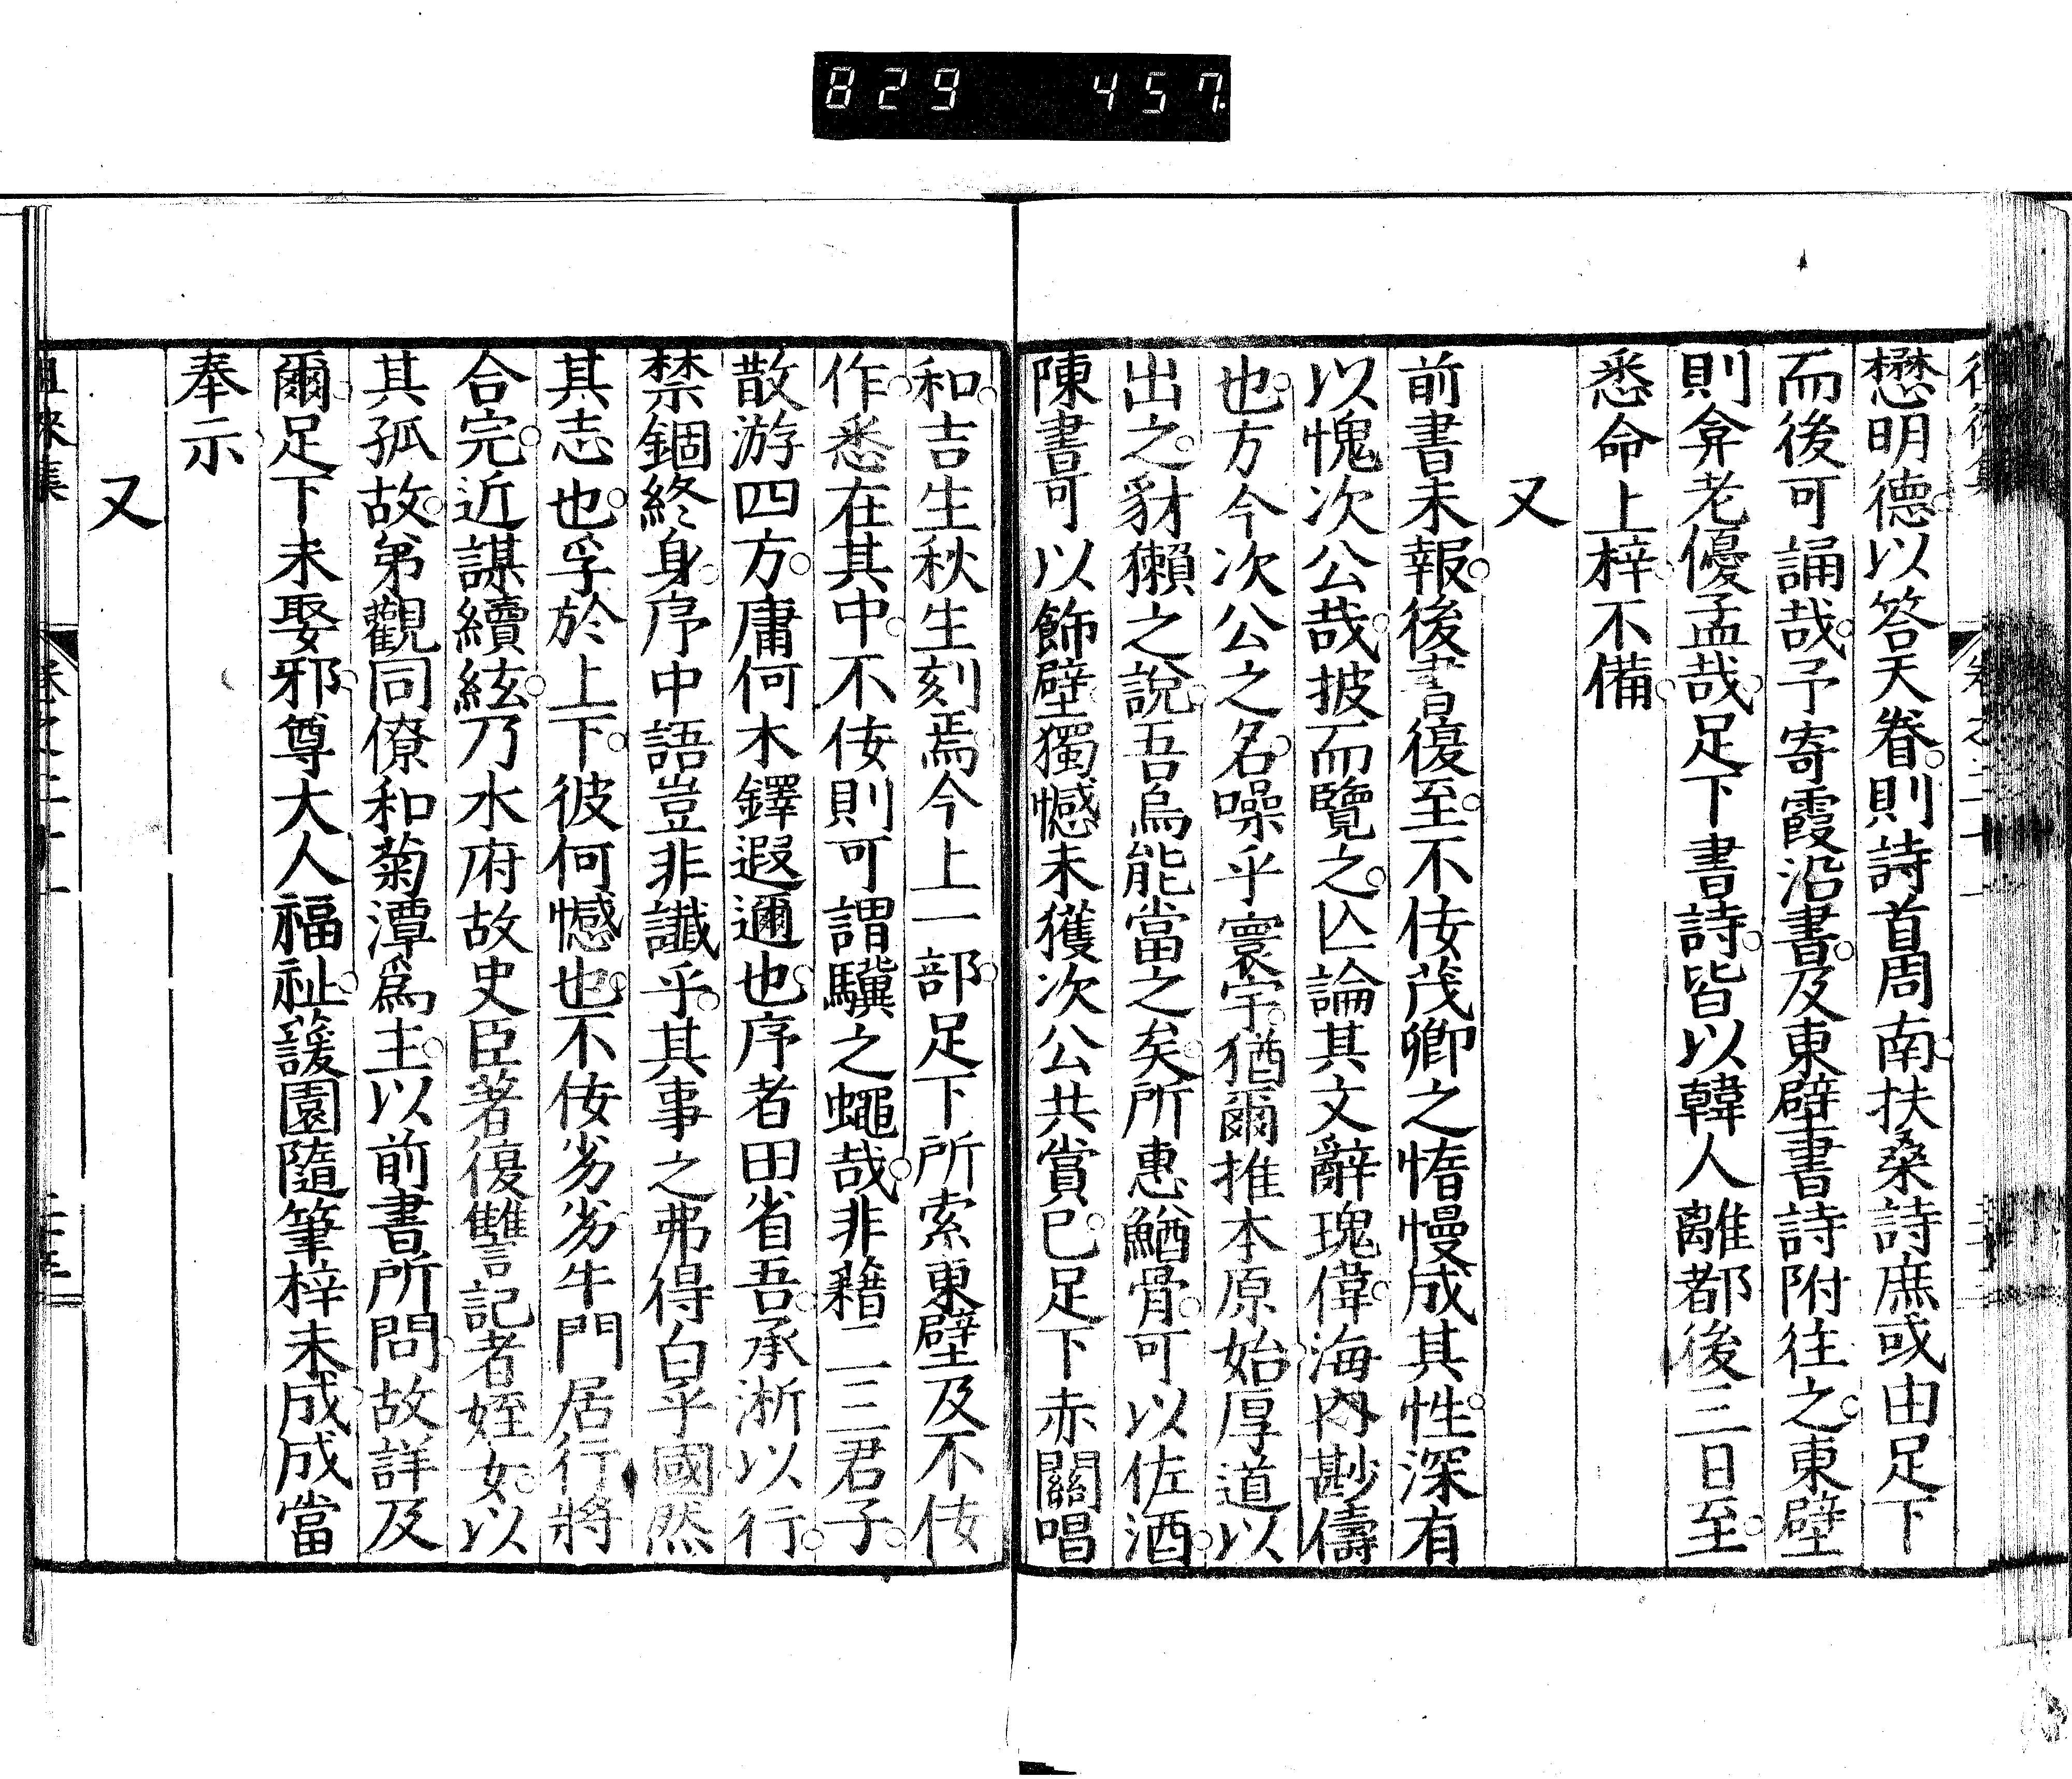 829 457
懋明德。以答天眷。則詩首周南。扶桑詩庶或由足下
而後可誦哉。予寄霞沼書。及東壁書詩附往之。東壁
則弇老優孟哉。足下書詩。皆以韓人離都後三日至。
悉命上梓。不備。
又
前書未報。後書復至。不佞茂卿之惰慢成其性。深有
以愧次公哉。披而覽之。亾論其文辭瑰偉。海內尠儔
也。方今次公之名。噪乎寰宇。猶爾推本原始。厚道以
出之。豺獺之說。吾烏能當之矣。所惠鰌骨。可以佐酒。
陳書可以飾壁。獨憾未獲次公共賞已。足下赤關唱
和。吉生秋生刻焉。今上一部。足下所索東壁及不佞
作。悉在其中。不佞則可謂驥之蠅哉。非籍二三君子。
散游四方。庸何木鐸遐邇也。序者田省吾。承淅以行。
禁錮終身。序中語豈非讖乎。其事之弗得白乎國。然
其志也。孚於上下。彼何憾也。不佞劣劣。牛門居行將
合完。近謀續絃。乃水府故史臣著復讐記者姪女。以
其孤故。弟觀同僚和菊潭爲主。以前書所問。故詳及
爾。足下未娶邪。尊大人福祉。蘐園隨筆梓未成。成當
奉示。
又